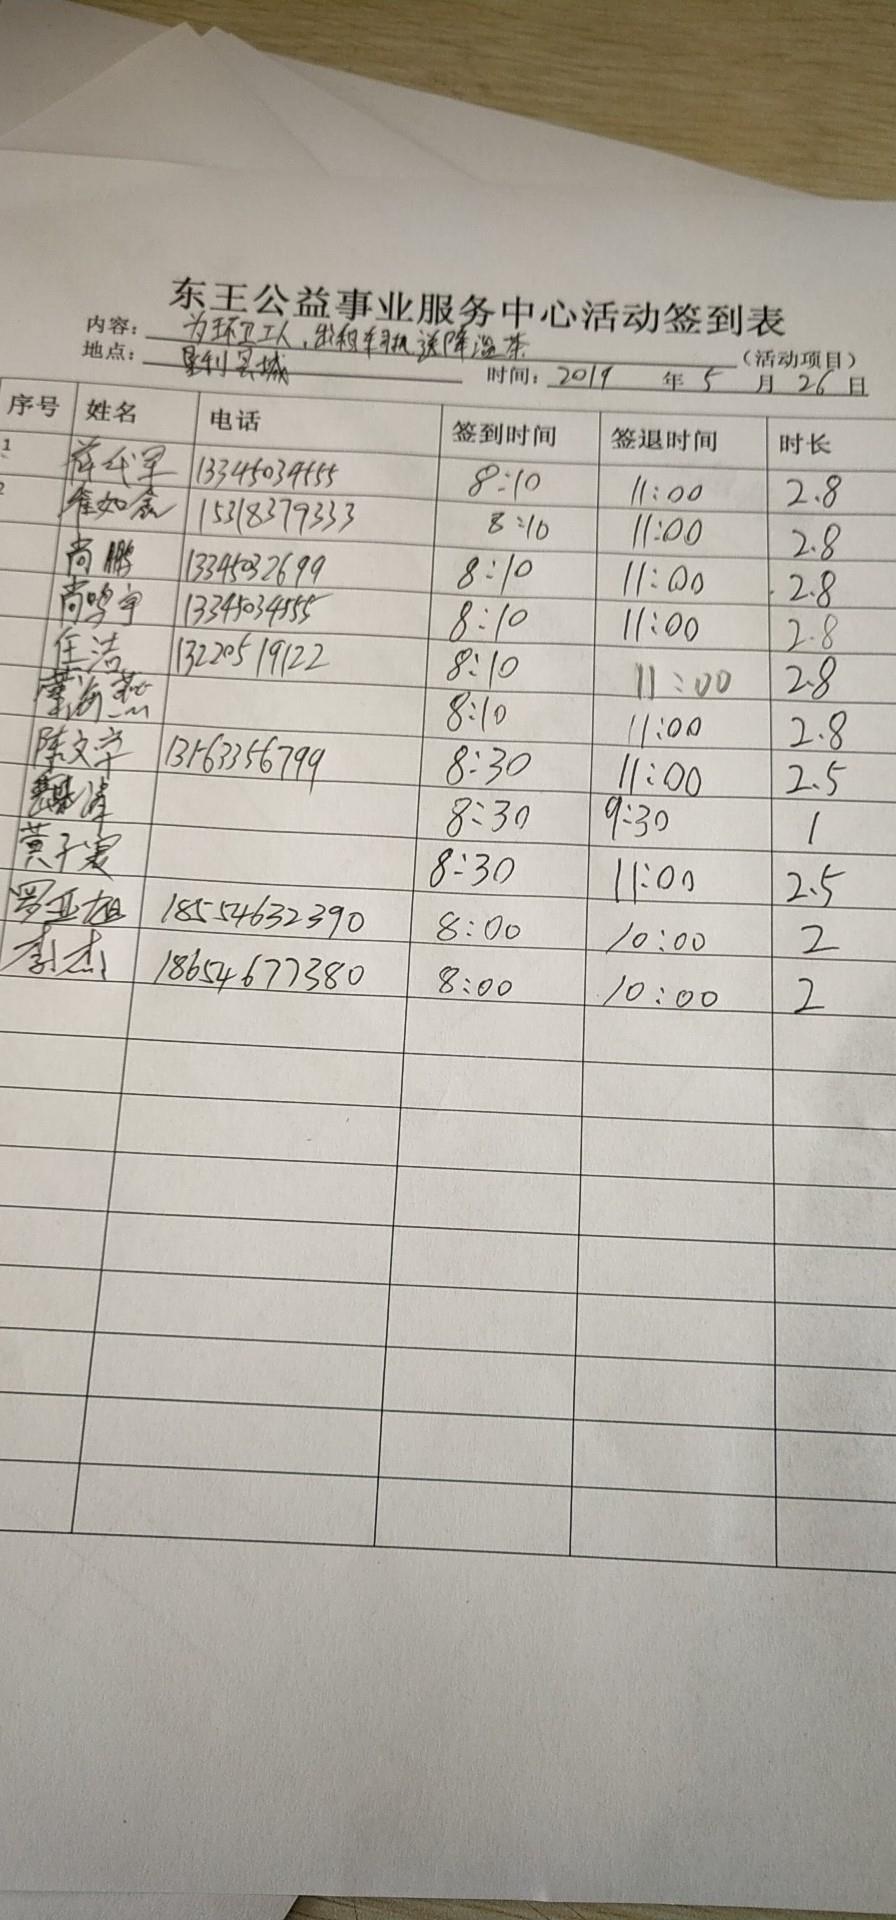 东王公益事业服务中心活动签到表
内容：为环卫工人，出租车司机送降温茶（活动项目）
地点：垦利县城 时间：2019年5月26日
序号 姓名 电话 签到时间 签退时间 时长
1 13345034555 8:10 11:00 2.8
2 崔如鑫 15318379333 8:10 11:00 2.8
尚鹏 13345032699 8:10 11:00 2.8
尚鸣宇 13345034555 8:10 11:00 2.8
任洁 13220519122 8:10 11:00 2.8
海燕 8:10 11:00 2.8
陈文学 13163356799 8:30 11:00 2.5
8:30 9:30 1
黄子 8:30 11:00 2.5
罗亚 18554632390 8:00 10:00 2
李杰 18654677380 8:00 10:00 2